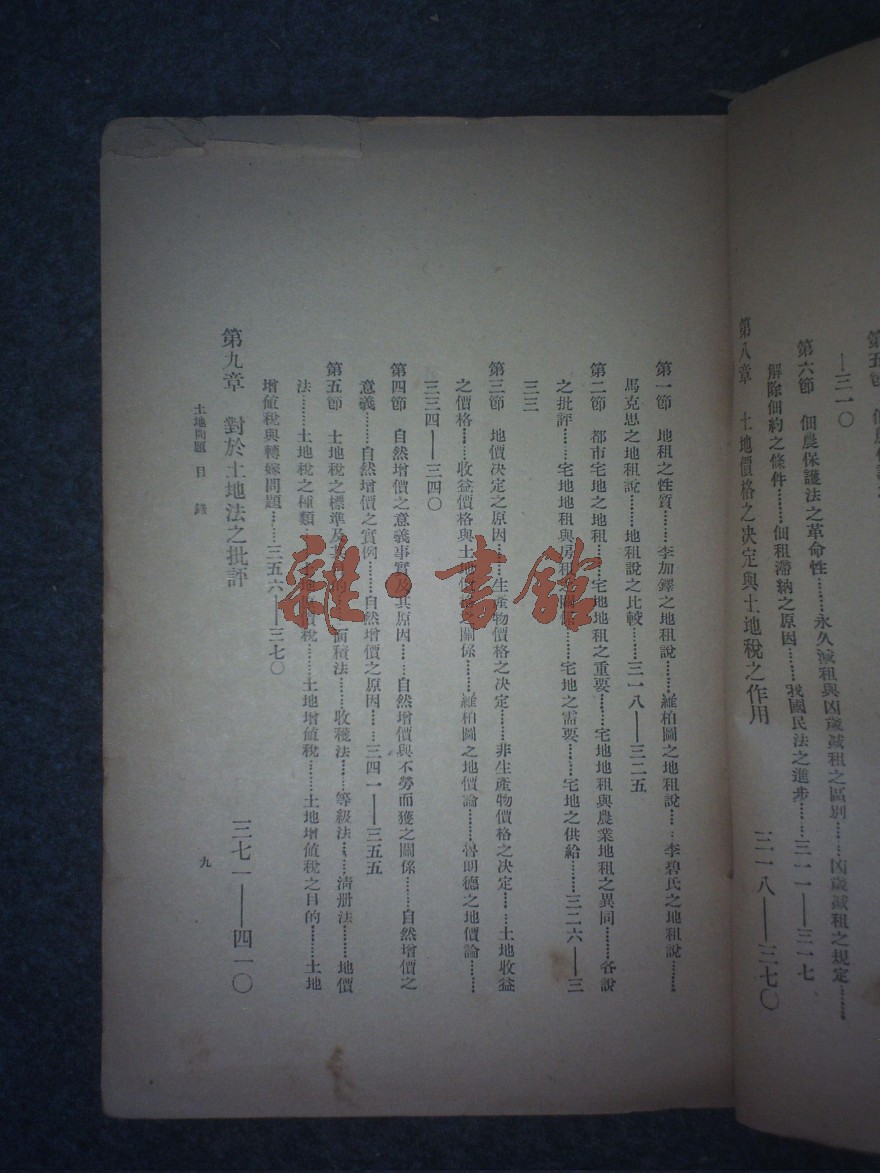 ——三一〇
第六節　佃農保護法之革命性………永久減租與凶歲減租之區別………凶歲減租之規定………
解除佃約之條件………佃租滯納之原因………我國民法之進步………三一一——三一七
第八章　土地價格之決定與土地稅之作用　三一八——三七〇
第一節　地租之性質………李加鐸之地租說………羅柏圖之地租說………李碧氏之地租說………
馬克思之地租說………地租說之比較………三一八——三二五
第二節　都市宅地之地租………宅地地租之重要………宅地地租與農業地租之異同………各說
之批評………宅地地租與房租之關係………宅地之需要………宅地之供給………三二六——三
三三
第三節　地價決定之原因………生產物價格之決定………非生產物價格之決定………土地收益
之價格………收益價格與土地價格之關係………羅柏圖之地價論………魯明德之地價論………
三三四——三四〇
第四節　自然增價之意義事實及其原因………自然增價與不勞而獲之關係………自然增價之
意義………自然增價之實例………自然增價之原因………三四一——三五五
第五節　土地稅之標準及其　面積法………收穫法………等級法………清册法………地價
法………土地稅之種類………稅………土地增值稅………土地增值稅之目的………土地
增值稅與轉嫁問題………三五六——三七〇
第九章　對於土地法之批評　三七一——四一〇
土地問題　目錄
九
雜·書館